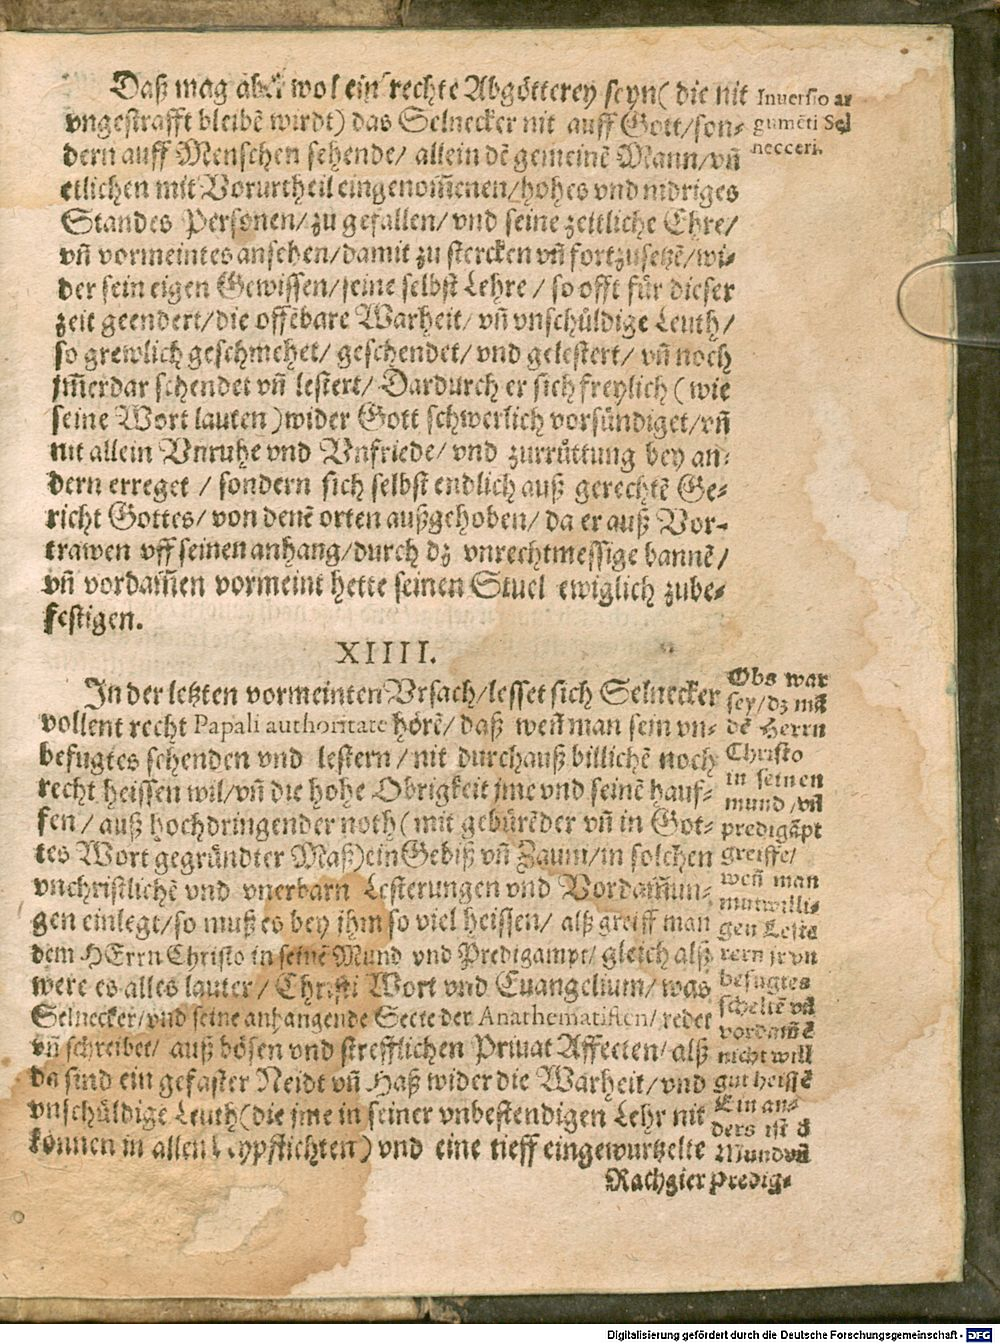 Daß mag aber wol ein rechte Abgötterey seyn( die nit
vngestrafft bleibē wirdt) das Selnecker nit auff Gott/son-
dern auff Menschen sehende/ allein dē gemeinē Mann/vñ
etlichen mit Vorurtheil eingenom̄enen/hohes vnd nidriges
Standes Personen/zu gefallen/vnd seine zeitliche Ehre/
vñ vormeintes ansehen/damit zu stercken vñ fortzusetzē/wi-
der sein eigen Gewissen/seine selbst Lehre / so offt für dieser
zeit geendert/die offēbare Warheit/ vñ vnschüldige Leuth/
so grewlich geschmehet/ geschendet/ vnd gelestert/ vñ noch
jm̄erdar schendet vñ lestert/ Dardurch er sich freylich (wie
seine Wort lauten )wider Gott schwerlich vorsündiget/vñ
nit allein Vnruhe vnd Vnfriede/ vnd zurrüttung bey an-
dern erreget / sondern sich selbst endlich auß gerechtē Ge-
richt Gottes/ von denē orten außgehoben/ da er auß Vor-
trawen vff seinen anhang/durch dz vnrechtmessige bannē/
vñ vordam̄en vormeint hette seinen Stuel ewiglich zube-
festigen.
Inuersio ar
gumēti Sel
necceri.
XIIII.
In der letzten vormeinten Vrsach/lesset sich Selnecker
vollent recht Papali authoritate hörē/ daß weñ man sein vn-
befugtes schenden vnd lestern / nit durchauß billichē noch
recht heissen wil/vñ die hohe Obrigkeit jme vnd seinē hauf-
fen / auß hochdringender noth ( mit gebürēder vñ in Got-
tes Wort gegründter Maß)ein Gebiß vñ Zaum/in solchen
vnchristlichē vnd vnerbarn Lesterungen vnd Vordam̄un-
gen einlegt/so muß es bey ihm so viel heissen/ alß greiff man
dem HErrn Christo in seinē Mund vnd Predigampt/ gleich alß
were es alles lauter/ Christi Wort vnd Euangelium/ was
Selnecker/vnd seine anhangende Secte der Anathematisten/ redet
vñ schreibet/ auß bösen vnd strefflichen Priuat Affecten/ alß
da sind ein gefaster Neidt vñ Haß wider die Warheit/vnd
vnschüldige Leuth(die jme in seiner vnbestendigen Lehr nit
können in allen beypflichten) vnd eine tieff eingewurtzelte
Rachgier
Obs war
sey/dz mā
dē Herrn
Christo
in seinen
mund /vñ
predigāpt
greiffe/
weñ man
mutwilli-
gen Leste
rern jr vn
befugtes
scheltē vñ
vordam̄ē
nicht will
gut heissē
Ein an-
ders ist d̄
Mund vñ
Predig-
Digitalisierung gefördert durch die Deutsche Forschungsgemeinschaft - DFG